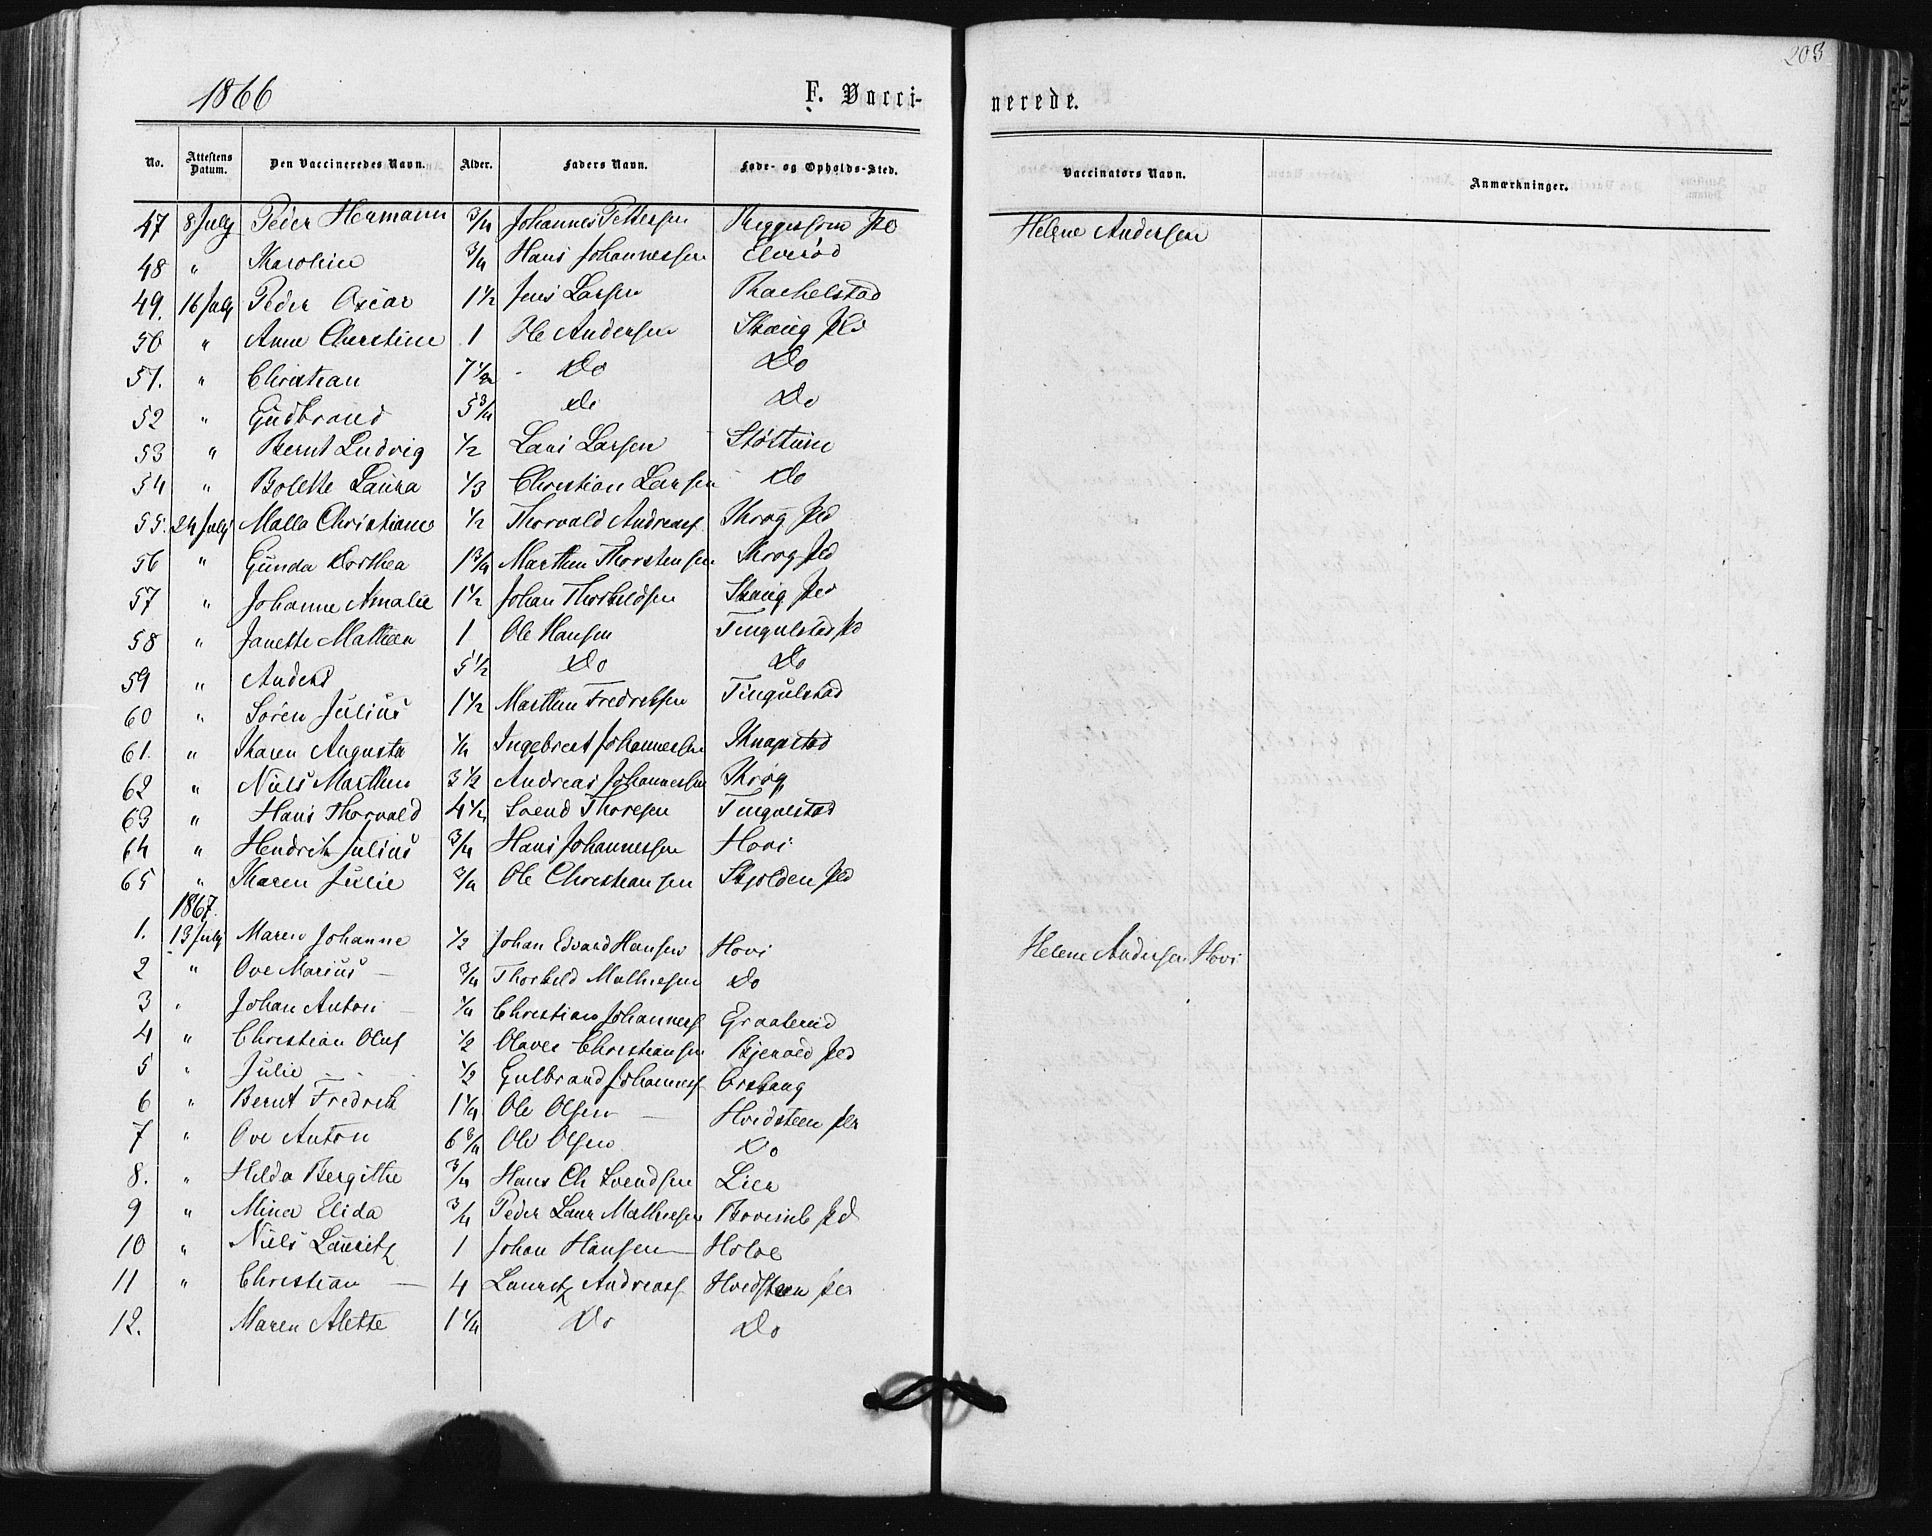 203
1866 F. Vacci- nerede.
No. Attestens Datum. Den Vaccineredes Navn. Alder. Faders Navn. Føde- og Opholds-Sted. Vaccinators Navn. Anmærkninger.
47 8 July Peder Hermann 3/4 Johannes Pettersen Helene Andersen
48 " Karoline 3/4 Hans Johannessen Elverød
49. 16 July Peder Oscar 1 1/2 Jens Larsen Rachelstad
50 " Anne Christine 1 Ole Andersen Skaug Pld
51. " Christian 7 1/2 Do Do
52 " Gudbrand 5 3/4 Do Do
53 " Bernt Ludvig 1/2 Lars Larsen Støttum
54 " Bolette Laura 1/3 Christian Larsen Do
55. 24 July Malla Christiane 1/2 Thorvald Andreass. Krog Pld
56 " Gunda Dorthea 1 3/4 Marthin Thorstensen Krog Pld
57 " Johanne Amalie 1 1/2 Johan Thorkildsen Skaug Pld
58 " Janette Mathea 1 Ole Hansen Tingulstad Pld
59 " Anders 5 1/2 Do Do
60 " Søren Julius 1 1/2 Marthin Fredriksen Tingulstad
61. " Karen Augusta 1/4 Ingebret Johannessen Knapstad
62 " Niels Marthin 3 1/2 Andreas Johannessen Krog
63 " Hans Thorvald 4 1/2 Svend Thoresen Tingulstad
64 " Hendrik Julius 3/4 Hans Johannessen Hovi
65 " Karen Julie 3/4 Ole Christiansen Skjolden Pld
1867.
1. 13 July Maren Johanne 1/2 Johan Edvard Hansen Hovi Helene Andersen Hovi
2 " Ove Marius 3/4 Thorkild Mathiesen Do
3 " Johan Anton 1/4 Christian Johanness.
4 " Christian Oluf 1/2 Olaves Christiansen Bjerøed Pld
5 " Julie 1/2 Gulbrand Johanness. Orskaug
6 " Bernt Fredrik 1 1/4 Ole Olsen Hvidsteen Pld
7 " Ove Anton 6 3/4 Ole Olsen Do
8. " Hilda Bergitte 3/4 Hans Ch Svendsen Lier
9 " Mina Elida 3/4 Peder Laur Mathiesen
10 " Niels Lauritz 1 Johan Hansen Holoe
11 " Christian 4 Lauritz Andreass. Hvidsteen Pld
12. Maren Alette 1 1/4 Do Do